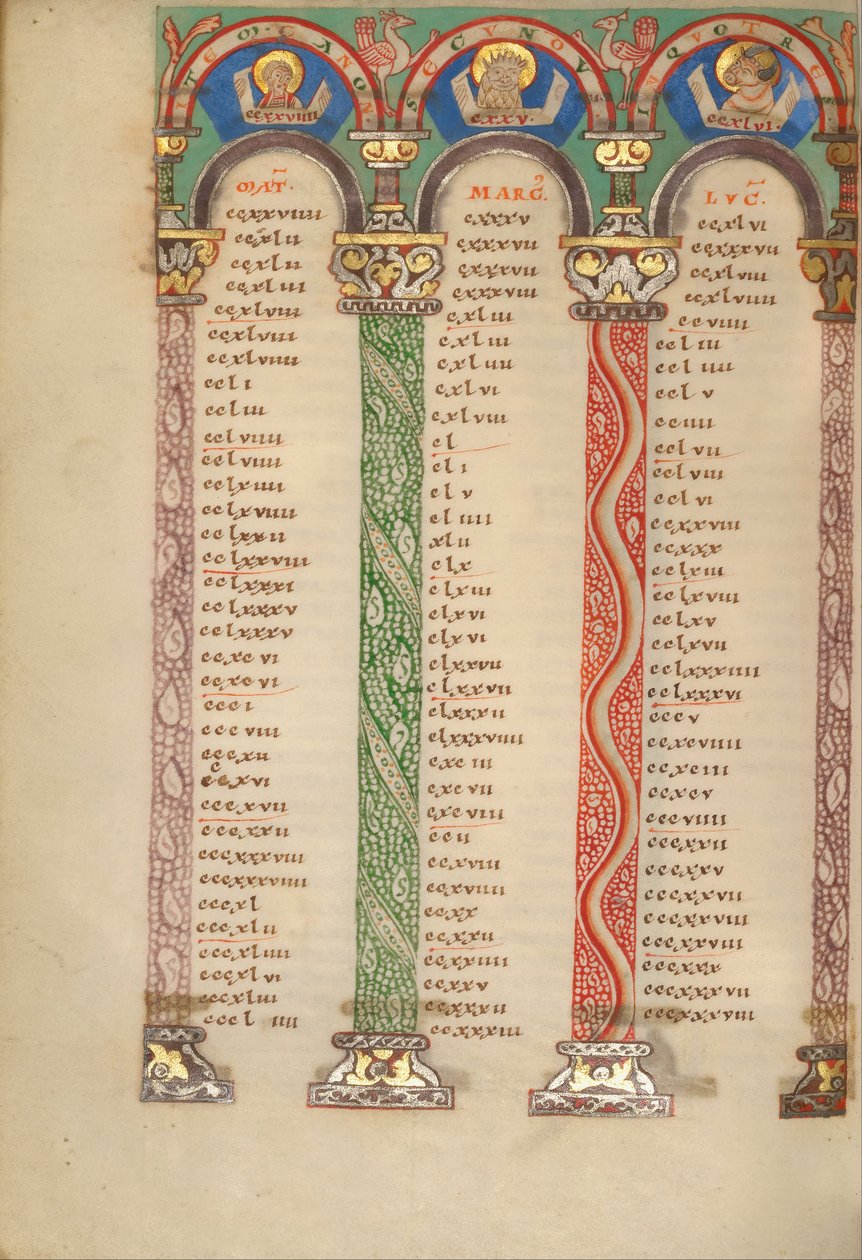 ITEM·CANON
SECVNDV
INQVOTRE
ccxxviiii
cxxxv·
ccxlvi·
MAT·
ccxxviiii
ccxlii
ccxlii
ccxliii
ccxlviii
ccxlviii
ccxlviiii
ccli
ccliii
cclviiii
cclviiii
cclxiiii
cclxviiii
cclxxii
cclxxviii
cclxxxi
cclxxxv
cclxxxv
ccxcvi
ccxcvi
ccci
cccviii
cccxii
cccxvi
cccxvii
cccxxii
cccxxxviii
cccxxxviiii
cccxl
cccxlii
cccxliiii
cccxlvi
cccxliii
cccliiii
MARC·
cxxxv
cxxxvii
cxxxvii
cxxxviii
cxliii
cxliii
cxliiii
cxlvi
cxlviii
cl
cli
clv
cliiii
xlii
clx
clxiii
clxvi
clxvi
clxxvii
clxxvii
clxxxii
clxxxviiii
cxciii
cxcvii
cxcviii
ccii
ccxviii
ccxviiii
ccxx
ccxxii
ccxxiiii
ccxxv
ccxxxii
ccxxxiii
LVC·
ccxlvi
ccxxxvii
ccxlviii
ccxlviiii
ccviiii
ccliii
ccliiii
cclv
cciiii
cclvii
cclviii
cclvi
ccxxviii
ccxxx
cclxiii
cclxviii
cclxv
cclxvii
cclxxxiiii
cclxxxvi
cccv
ccxcviiii
ccxciii
ccxcv
cccviiii
cccxxii
cccxxv
cccxxvii
cccxxviii
cccxxviii
cccxxx
cccxxxvii
cccxxxviii